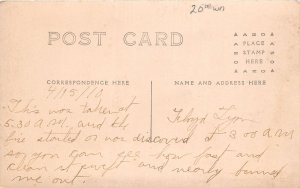 20.00 wn
POST CARD
AZO
PLACE
STAMP
HERE
AZO
CORRESPONDENCE HERE
NAME AND ADDRESS HERE
4/15/10
This was taken at
5:30 A.M. and the
fire started or was discovered at 3:00 A.M
so you can see how fast and
clean it swept and nearly burned
me out.
Floyd